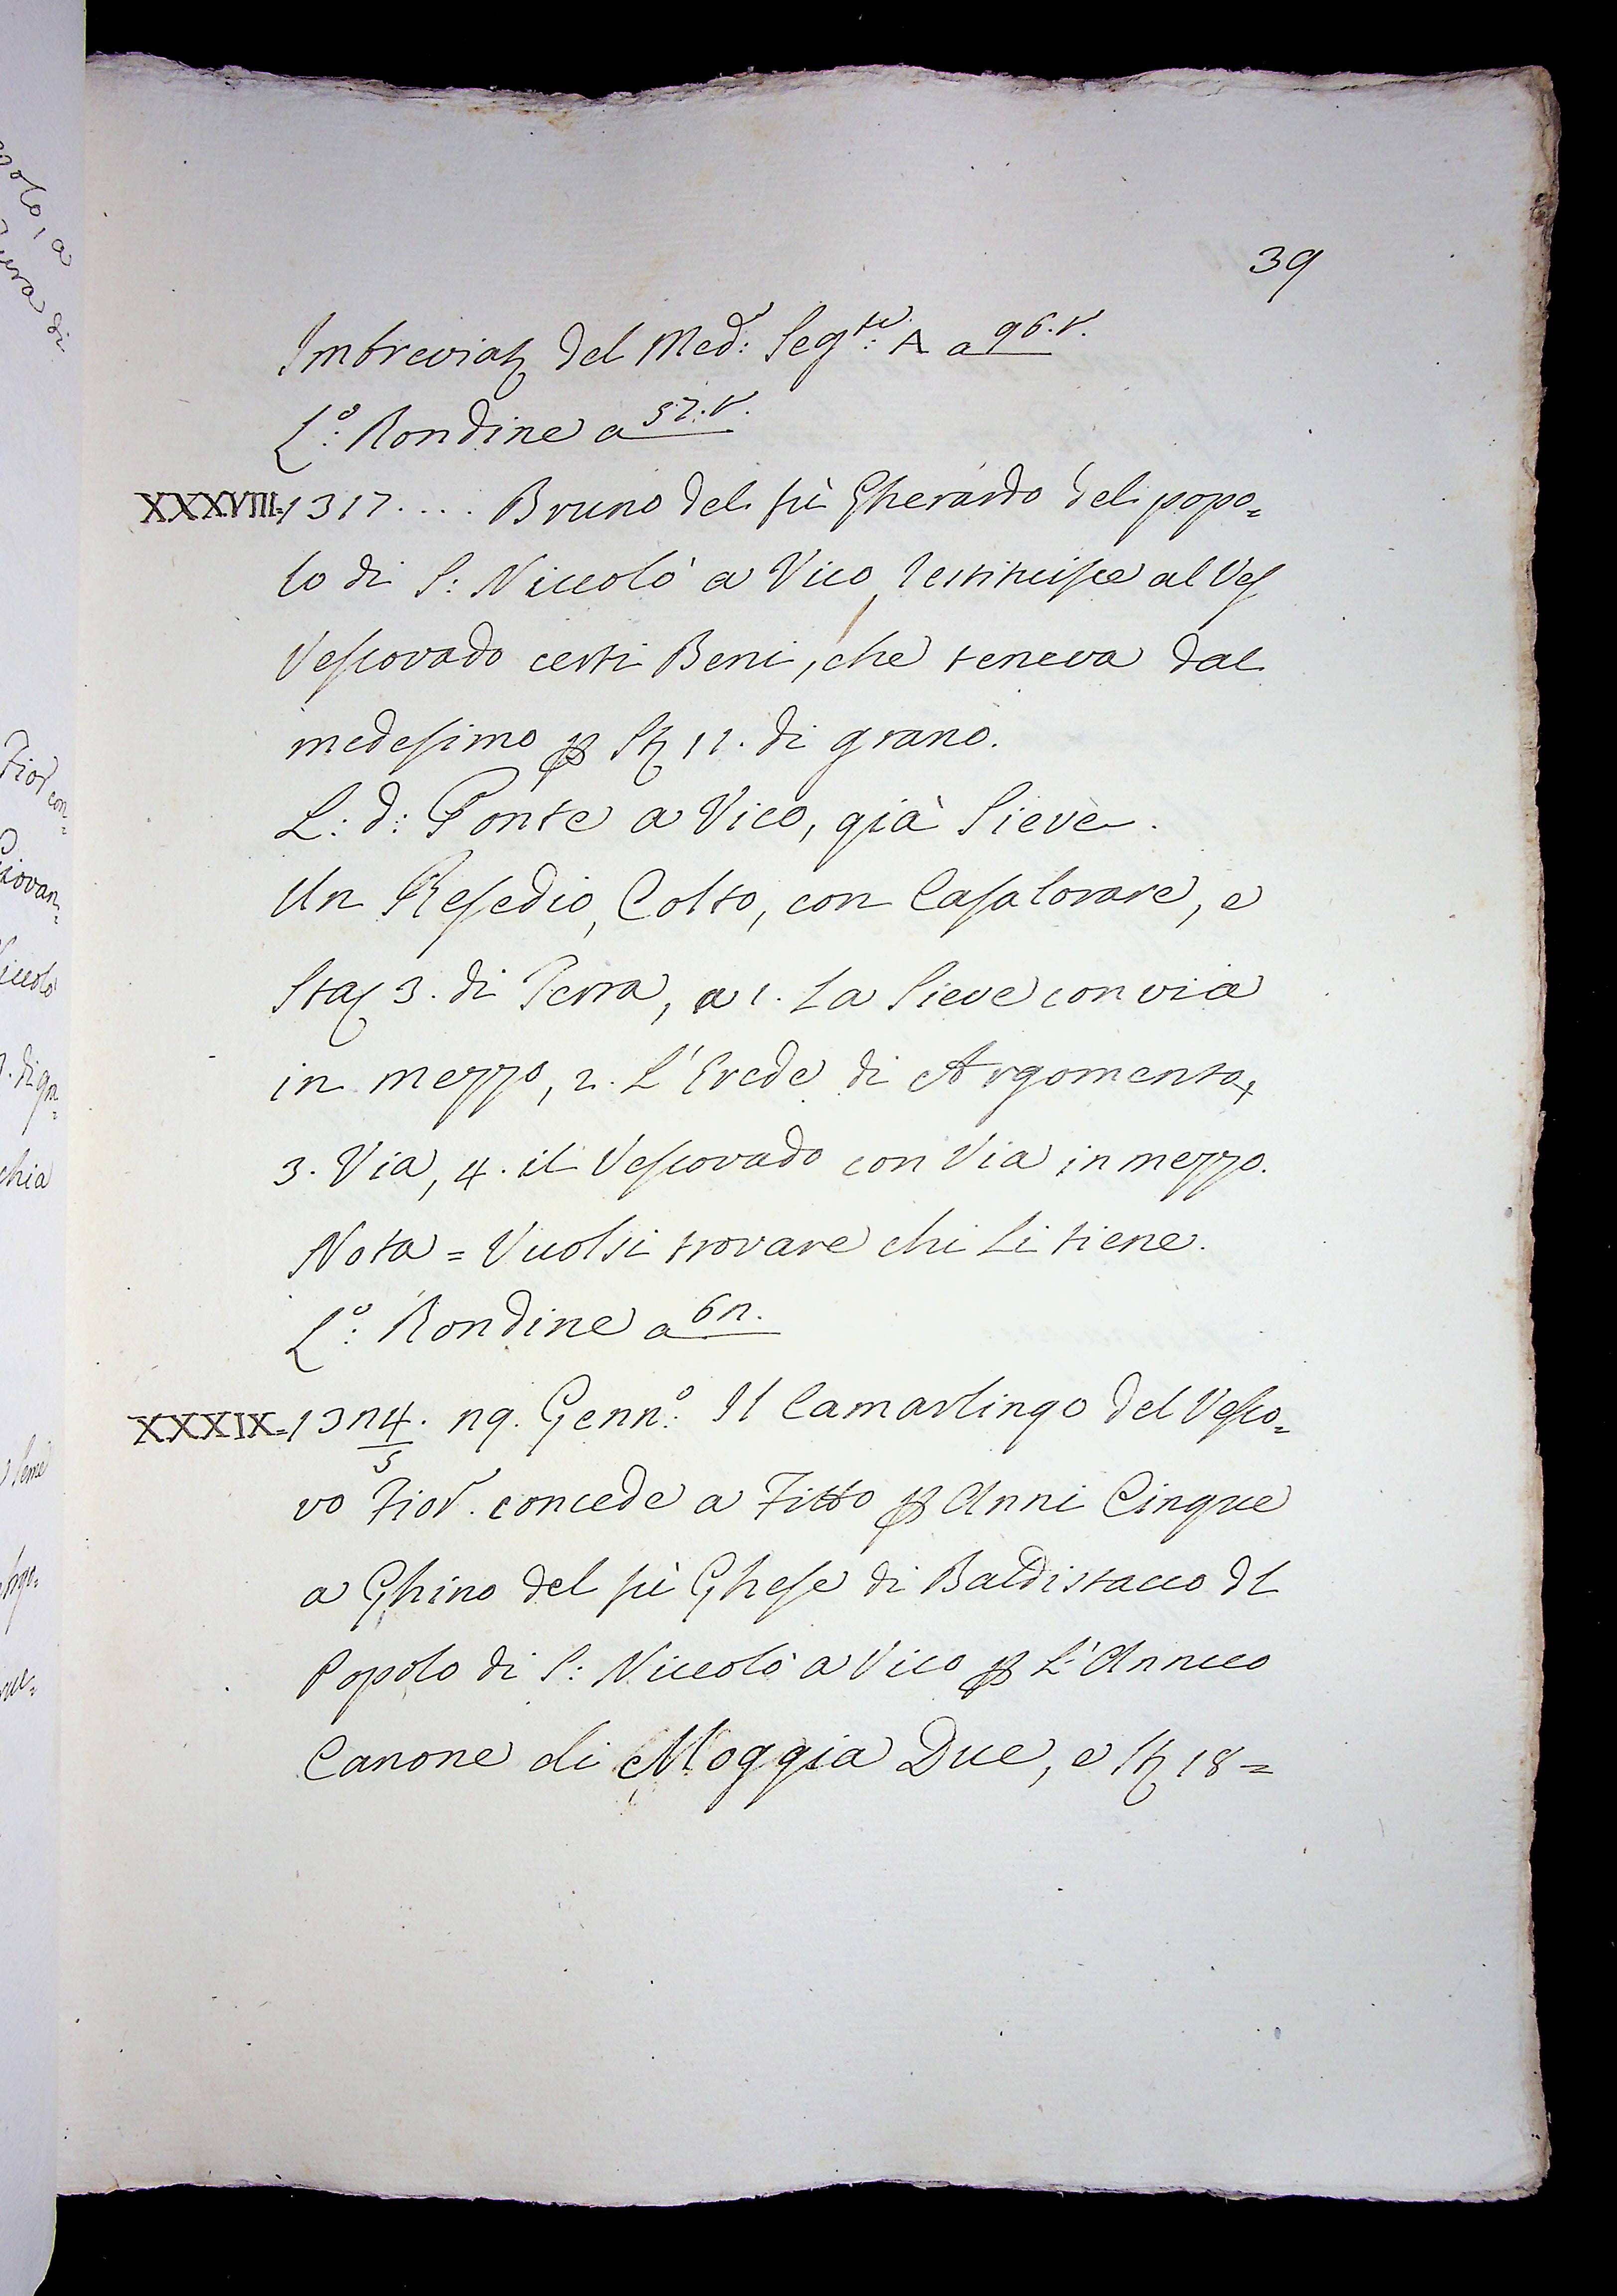 39
Imbreviaz del Med: Seg.te: A a 96.v.
L.o: Rondine a 57.v.
XXXVIII. 1317.... Bruno del fù Gherardo del popo=
lo di S: Niccolò a Vico, restituisce al Ves
Vescovado certi Beni, che teneva dal
medesimo p Sta 11. di grano.
L: d: Ponte a Vico, già Sieve.
Un Resedio, Colto, con Casalorare, e
Staj 3. di Terra, a 1. La Sieve con via
in mezzo, 2. L'Erede di Argomento,
3. Via, 4. il Vescovado con Via in mezzo.
Nota = Vuolsi trovare chi li tiene.
L.o: Rondine a 62.
XXXIX. 1324/5. 29. Genn.o: Il Camarlingo del Vesco=
vo Fior. concede a Fitto p Anni Cinque
a Ghino del fù Ghese di Baldistacco dl
Popolo di S: Niccolò a Vico p L'Annuo
Canone di Moggia Due, e Sta 18 =